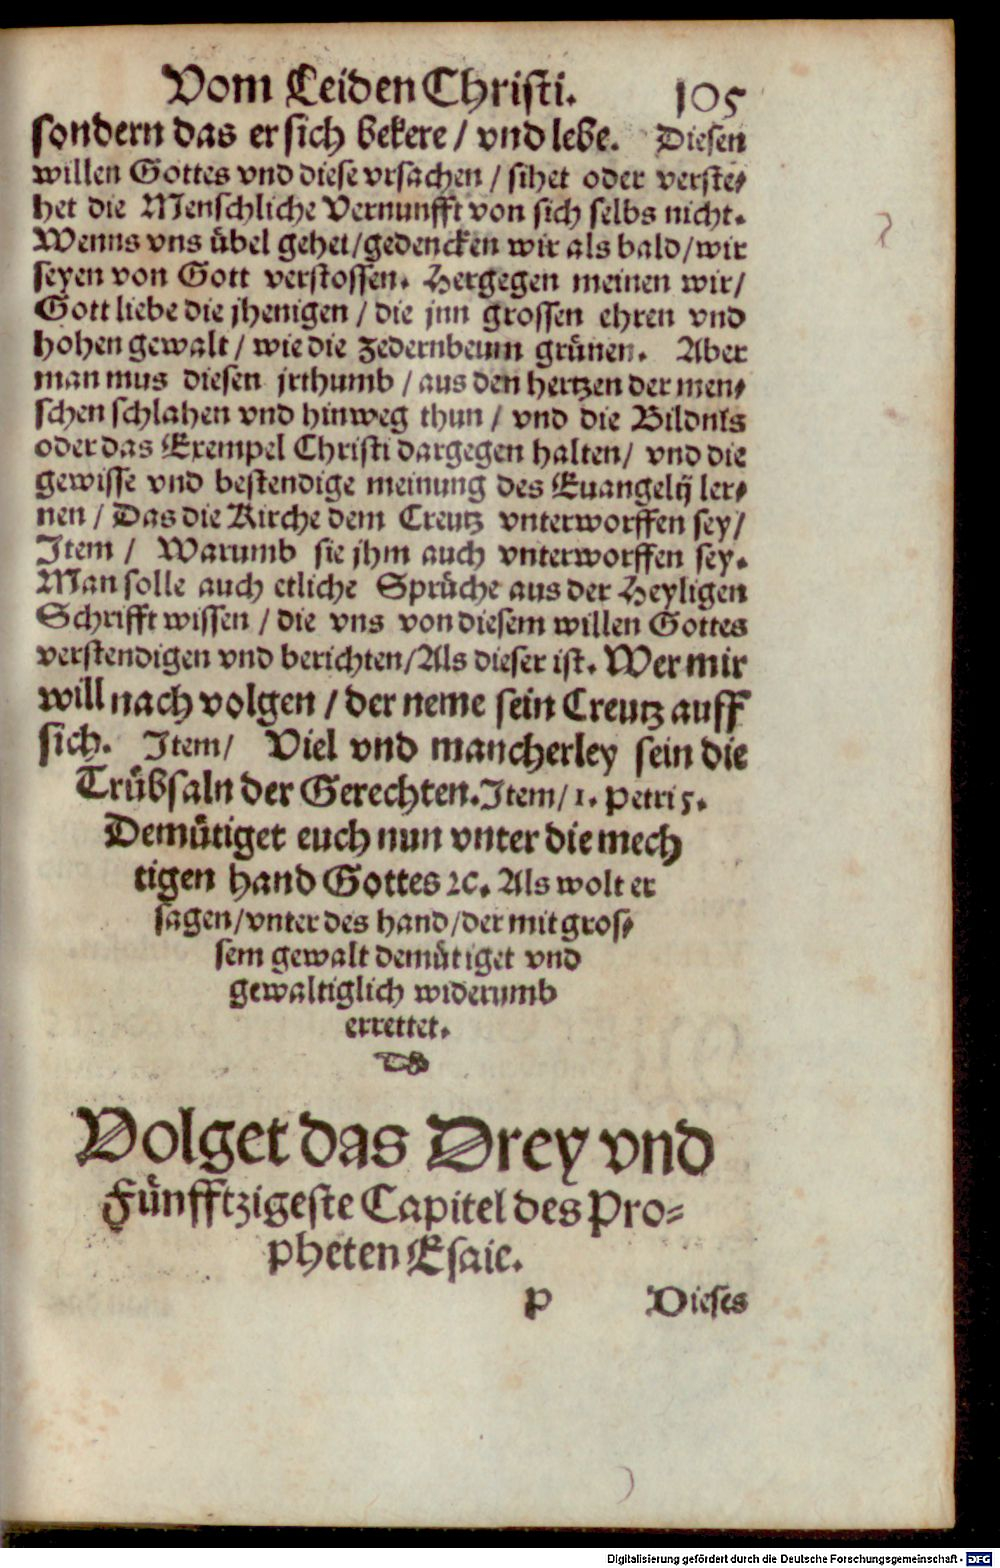 Vom Leiden Christi. 105
sondern das er sich bekere / vnd lebe. Diesen
willen Gottes vnd diese vrsachen / sihet oder verste⸗
het die Menschliche Vernunfft von sich selbs nicht.
Wenns vns übel gehet/gedencken wir als bald/wir
seyen von Gott verstossen. Hergegen meinen wir/
Gott liebe die jhenigen / die jnn grossen ehren vnd
hohen gewalt / wie die zedernbeum grünen. Aber
man mus diesen jrthumb / aus den hertzen der men⸗
schen schlahen vnd hinweg thun / vnd die Bildnis
oder das Exempel Christi dargegen halten/ vnd die
gewisse vnd bestendige meinung des Euangelij ler⸗
nen / Das die Kirche dem Creutz vnterworffen sey/
Item / Warumb sie jhm auch vnterworffen sey.
Man solle auch etliche Sprüche aus der Heyligen
Schrifft wissen / die vns von diesem willen Gottes
verstendigen vnd berichten/Als dieser ist. Wer mir
will nach volgen / der neme sein Creutz auff
sich. Item/ Viel vnd mancherley sein die
Trübsaln der Gerechten. Item/ 1. Petri 5.
Demütiget euch nun vnter die mech
tigen hand Gottes ꝛc. Als wolt er
sagen/vnter des hand/der mit gros⸗
sem gewalt demütiget vnd
gewaltiglich widerumb
errettet.
Volget das Drey vnd
Fünfftzigeste Capitel des Pro⸗
pheten Esaie.
P Dieses
Digitalisierung gefördert durch die Deutsche Forschungsgemeinschaft - DFG